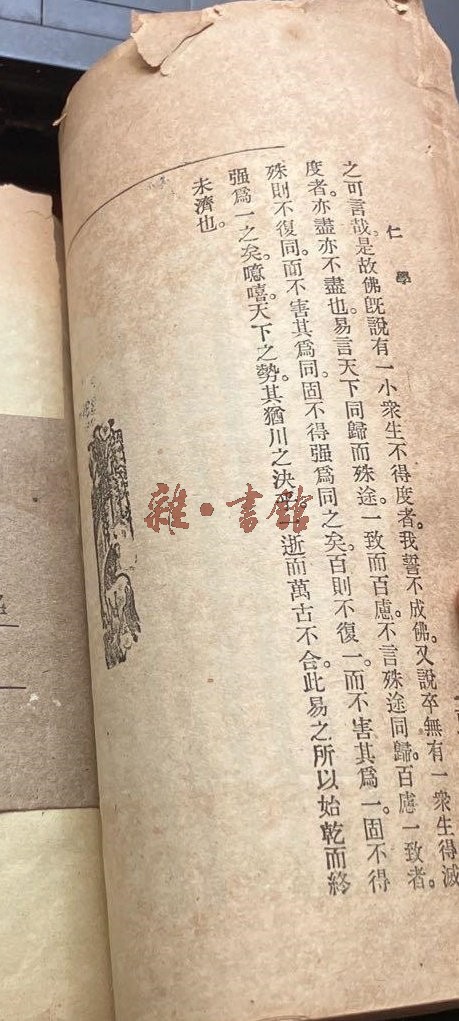 仁學
之可言哉。是故佛旣說有一小衆生不得度者。我誓不成佛。又說卒無有一衆生得滅
度者。亦盡亦不盡也。易言天下同歸而殊途。一致而百慮。不言殊途同歸。百慮一致者。
殊則不復同。而不害其爲同。固不得强爲同之矣。百則不復一。而不害其爲一。固不得
强爲一之矣。噫嘻。天下之勢。其猶川之決乎。一逝而萬古不合。此易之所以始乾而終
未濟也。
雜·書館